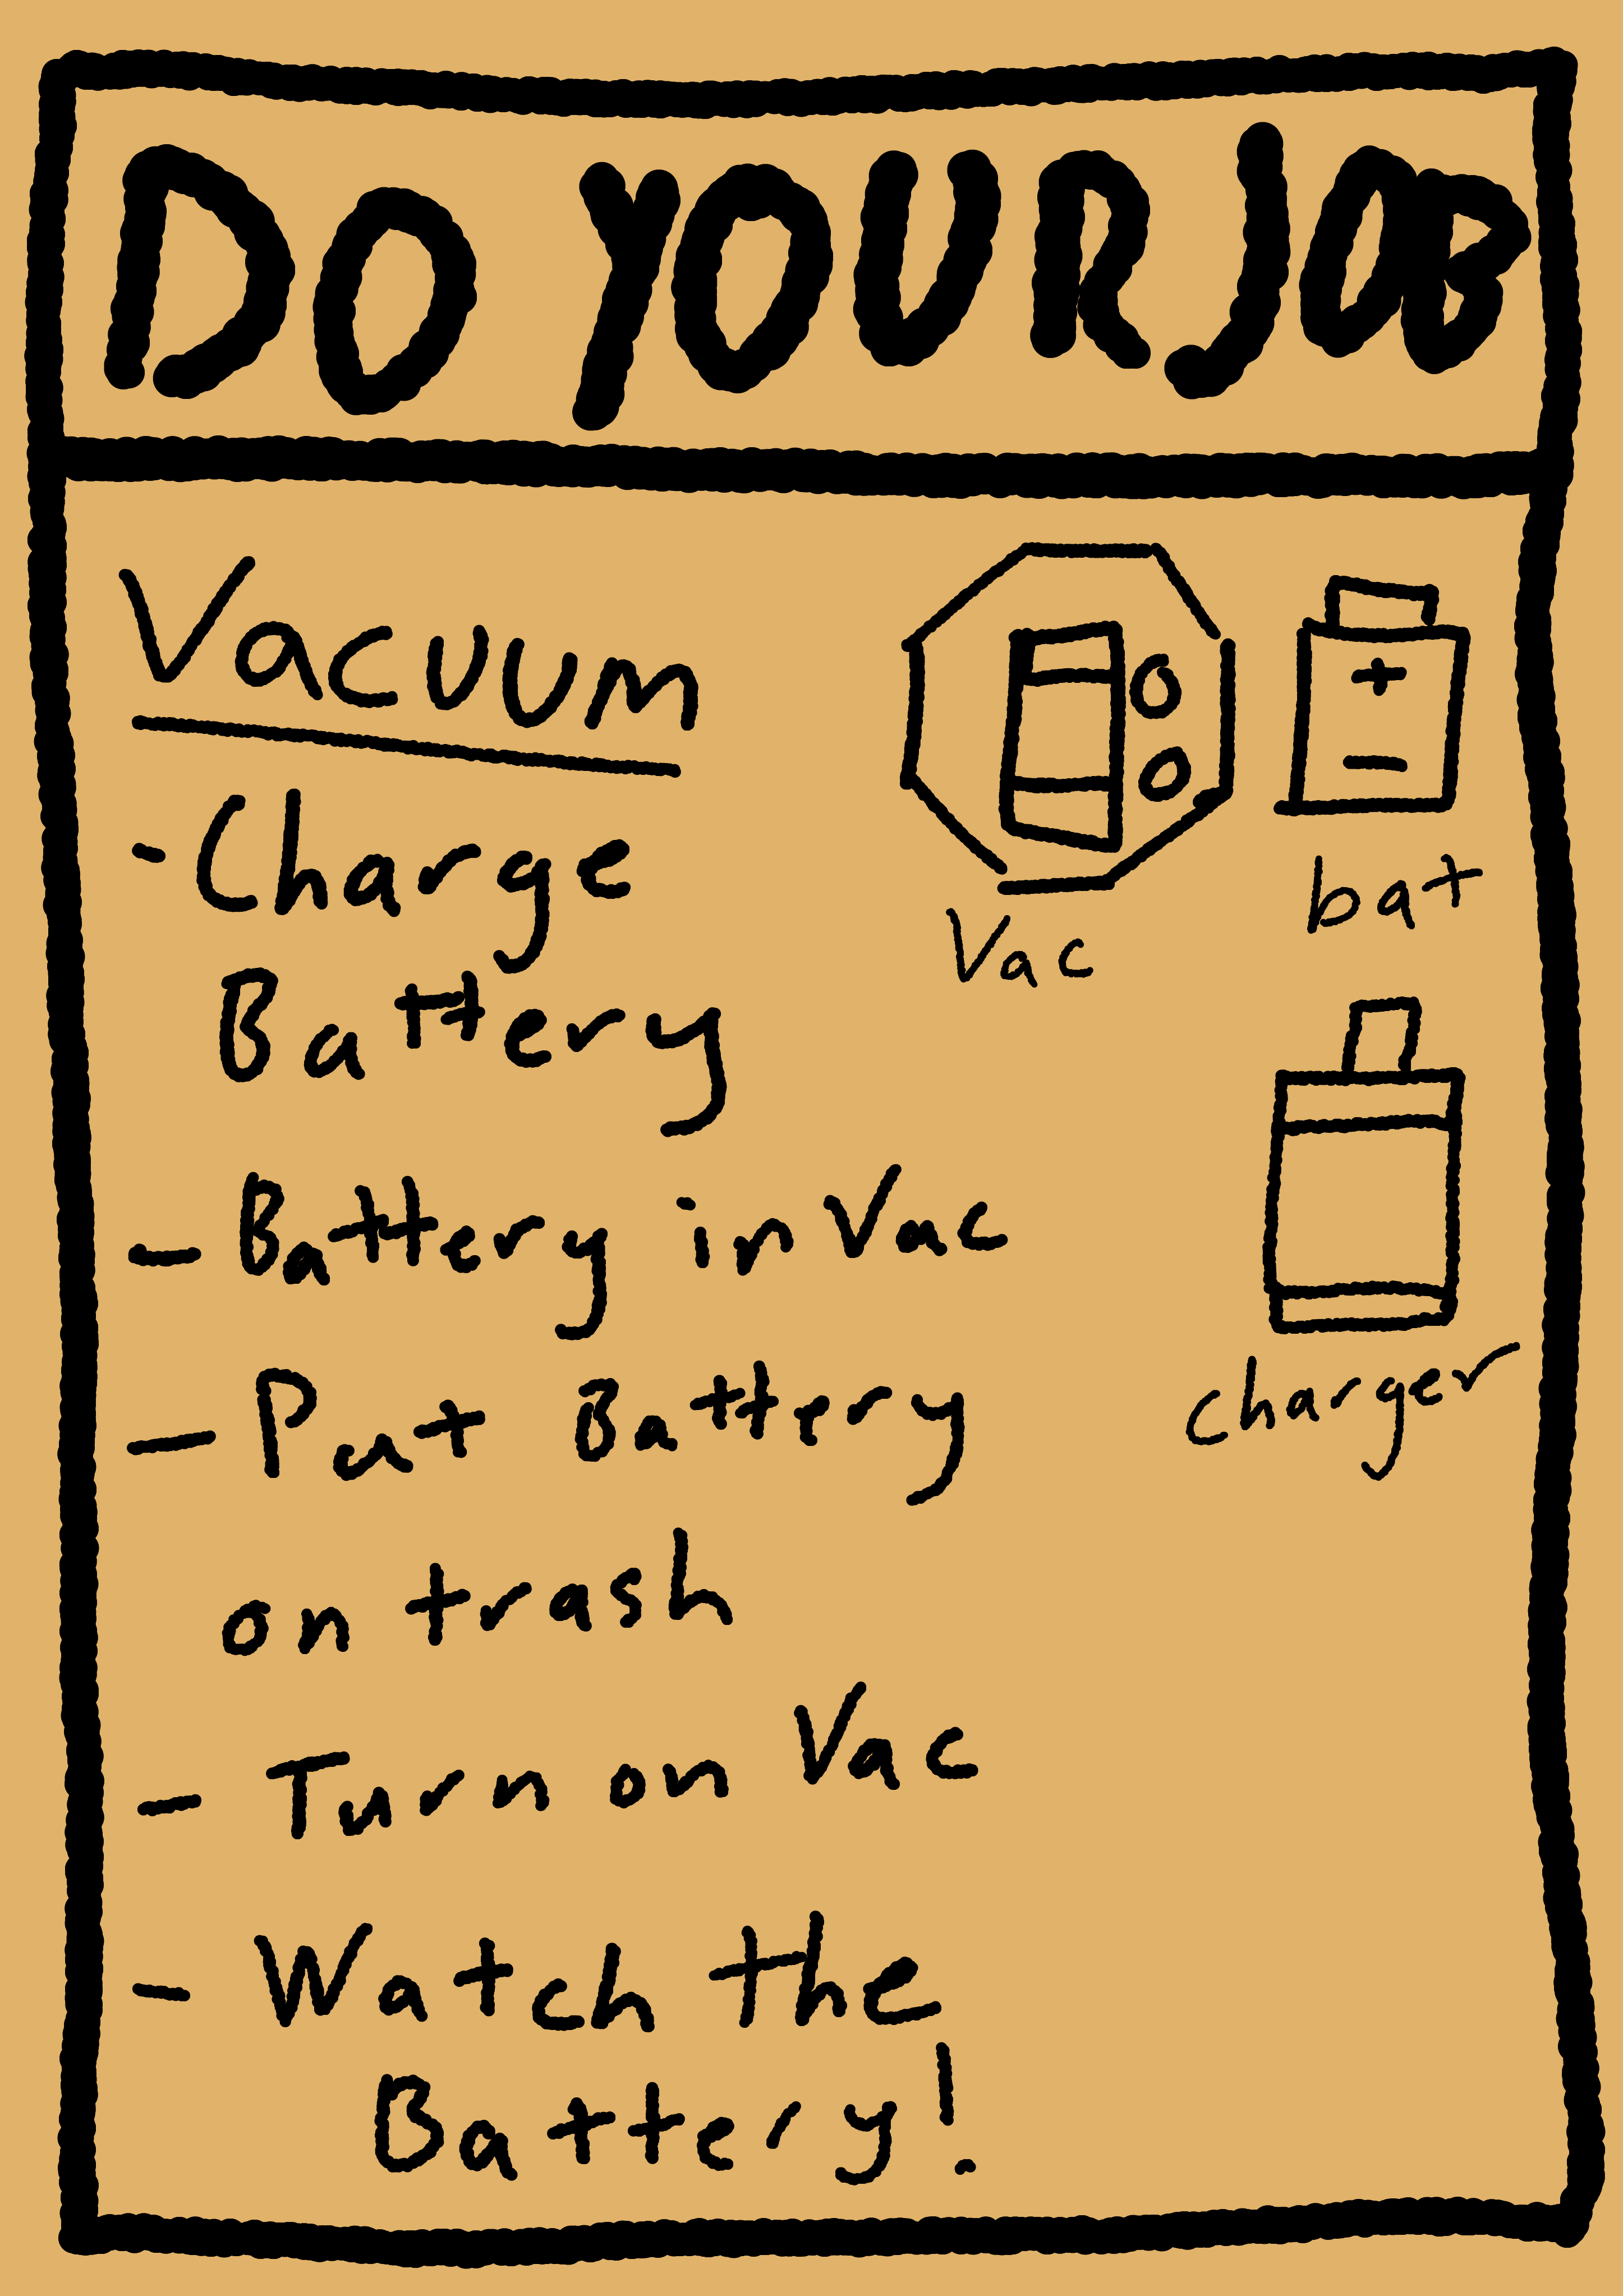 DO YOUR JOB
Vacuum
- Charge
Battery
- Battery in Vac
- Put Battery
on trash
- Turn on Vac
- Watch the
Battery!
Vac
bat
+
-
charger